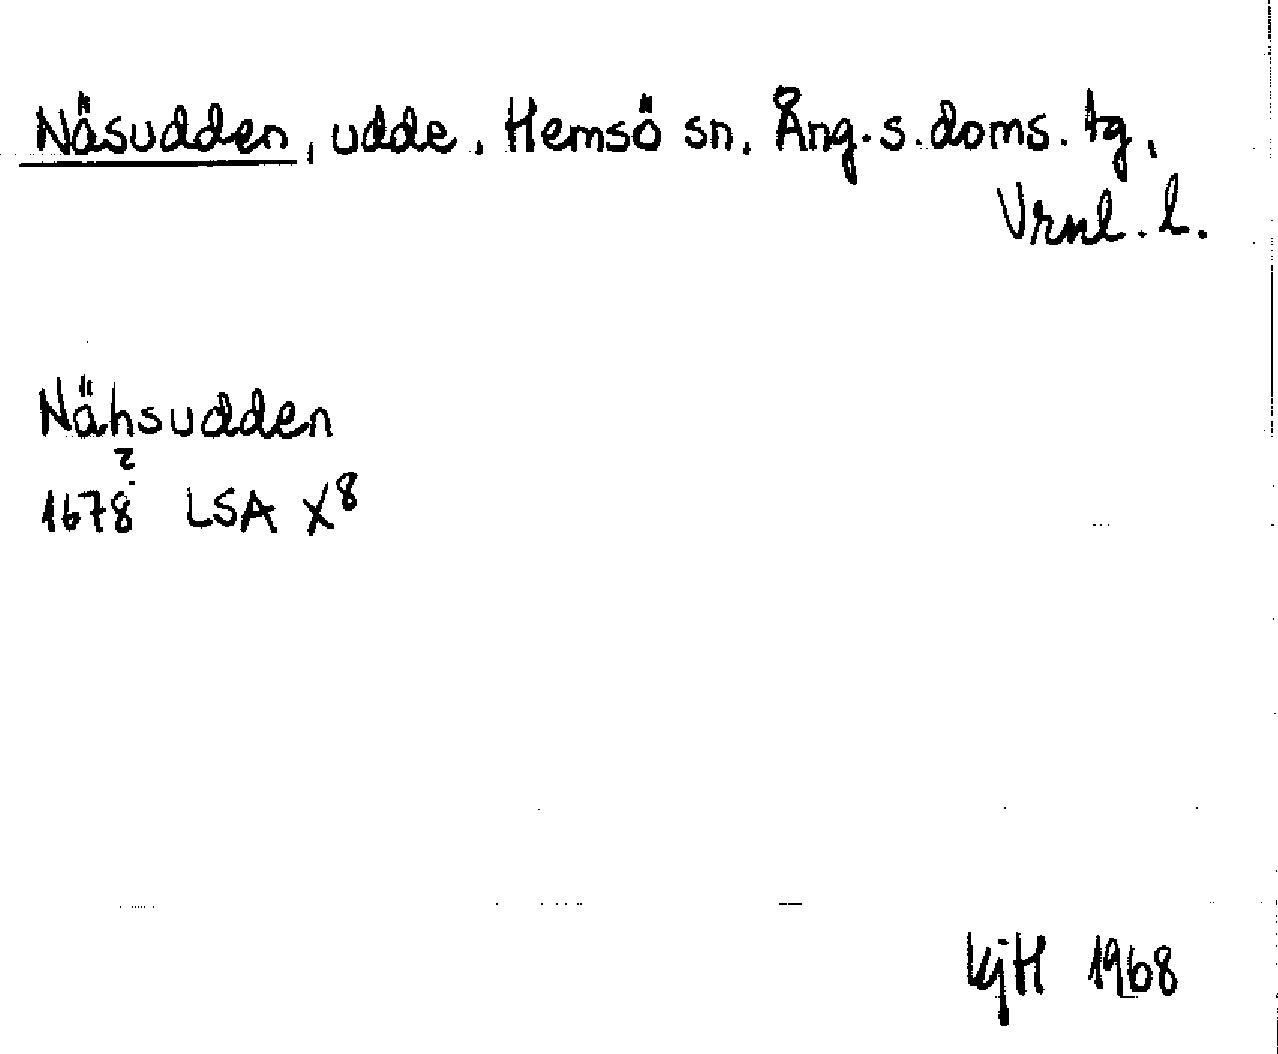 Näsudden, udde, Hemsö sn. Ång.s.doms. tg,
Vrnl. l.
Nähsudden
?
1678 LSA X8
KjH 1968